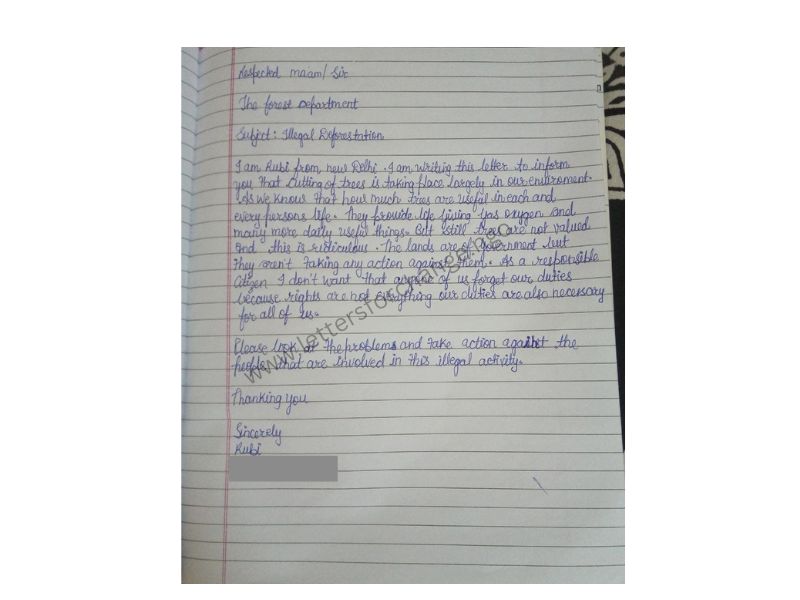 Respected ma'am/ Sir
The forest Department
Subject: Illegal Deforestation
I am Rubi from new Delhi. I am writing this letter to inform
you that cutting of trees is taking place largely in our enviroment.
As we know that how much trees are useful in each and
every persons life. They provide life giving gas oxygen and
many more daily useful things. But still trees are not valued
and this is ridiculous. The lands are of government but
they aren't taking any action against them. As a responsible
citizen I don't want that anyone of us forget our duties
because rights are not everything our duties are also necessary
for all of us.
Please look at the problems and take action against the
people that are involved in this illegal activity.
Thanking you
Sincerely
Rubi
www.lettersforchange.ngo